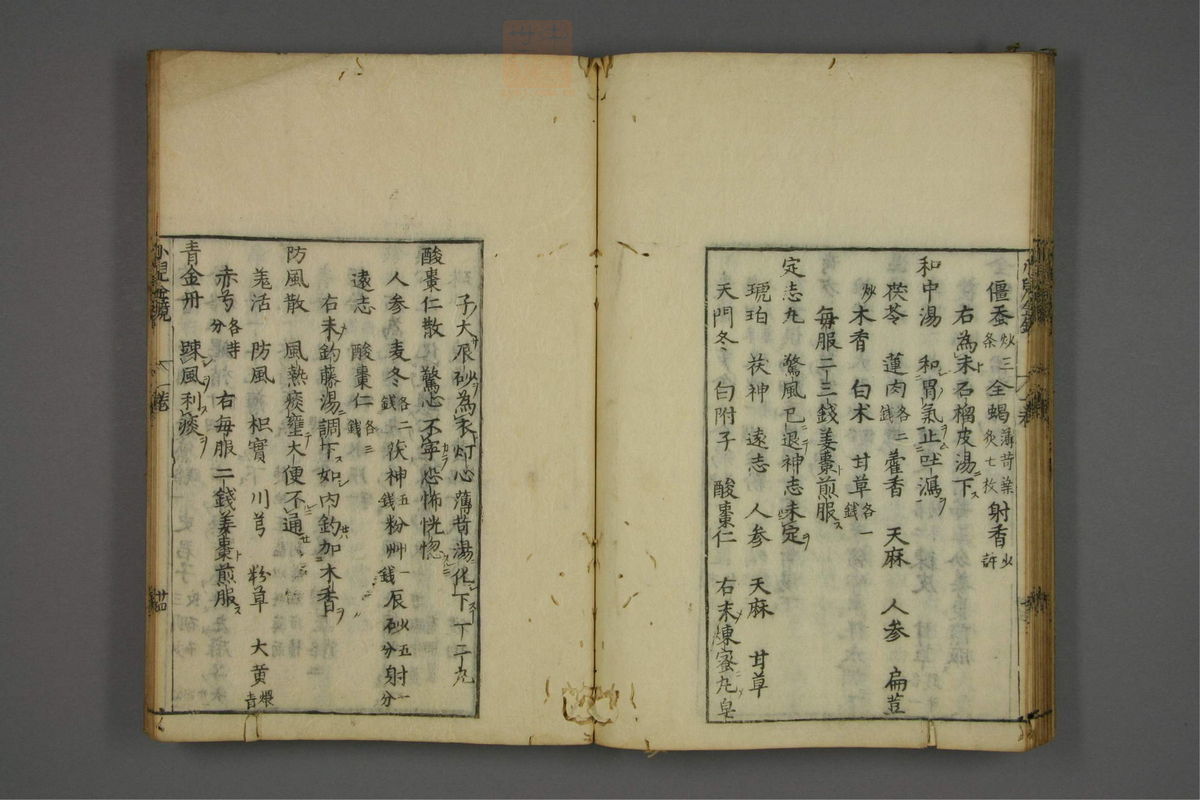 僵蚕炒三条 全蝎薄苛葉炙七枚 射香少許
右為末石榴皮湯下ス
和中湯 和胃氣止吐瀉
茯苓 蓮肉各二錢 藿香 天麻 人参 扁荳
炒 木香 白木 甘草各一錢
毎服二三錢姜棗煎服ス
定志丸 驚風已退神志未定
琥珀 茯神 遠志 人参 天麻 甘草
天門冬 白附子 酸棗仁 右末煉蜜丸皂
子大辰砂為衣灯心薄苛湯化下十二丸
酸棗仁散 驚心不寧恐怖恍惚
人参 麦冬各二錢 茯神五分 粉艸一錢 辰砂五分 射一分
遠志 酸棗仁各三錢
右末釣藤湯調下如内釣加木香
防風散 風熱痰壅大便不通
羗活 防風 枳實 川芎 粉草 大黄煨
赤芍各等分 右毎服二錢姜棗煎服ス
青金丹 踈風利痰
小兒